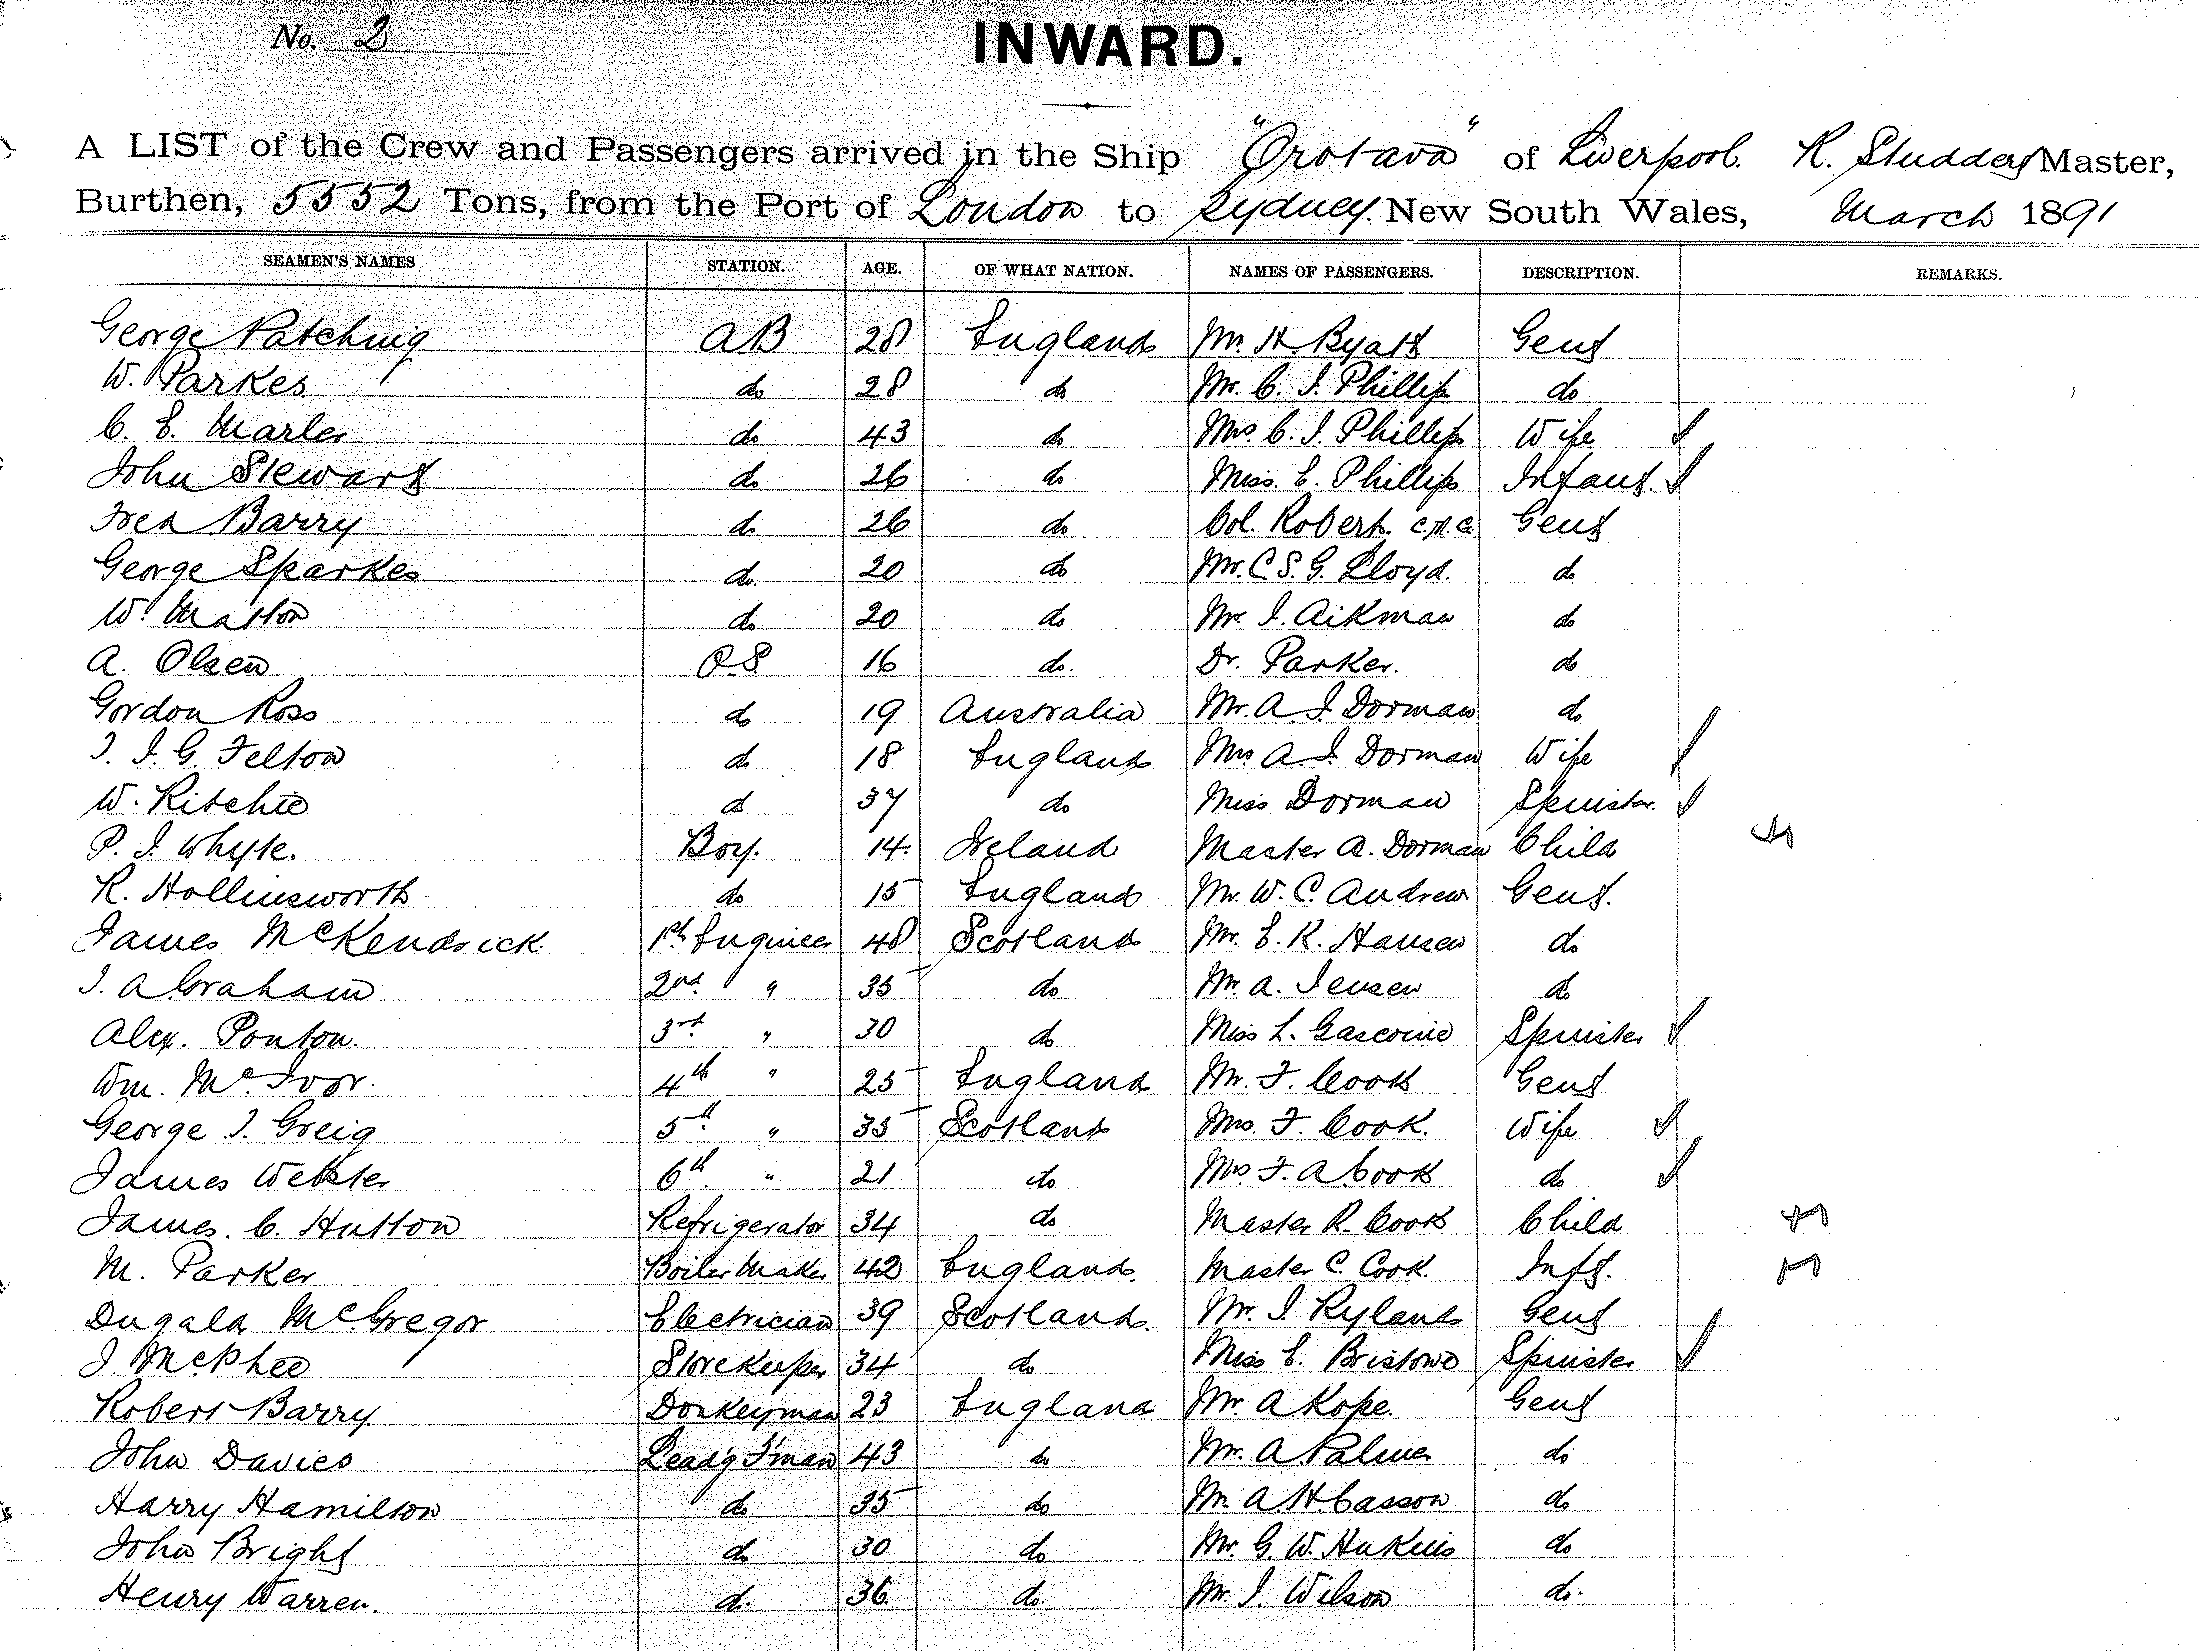 No. 2
INWARD.
A LIST of the Crew and Passengers arrived in the Ship "Orotava" of Liverpool. R. Studdert Master,
Burthen, 5552 Tons, from the Port of London to Sydney. New South Wales, March 1891
SEAMEN'S NAMES STATION. AGE. OF WHAT NATION. NAMES OF PASSENGERS. DESCRIPTION. REMARKS.
George Patching AB 28 England Mr. H. Byatt Gent
W. Parkes do 28 do Mr. C. J. Phillips do
C. E. Marler do 43 do Mrs C. J. Phillips Wife
John Stewart do 26 do Miss. E. Phillips Infant.
Fred Barry do 26 do Col. Robert. C.M.G. Gent
George Sparkes do 20 do Mr. C S. G. Lloyd. do
W. Matton do 20 do Mr. J. Aikman do
A. Olsen O.S 16 do. Dr. Parker. do
Gordon Ross do 19 Australia Mr. A. J. Dorman do
J. J. G. Felton do 18 England Mrs A J. Dorman Wife
W. Ritchie do 37 do Miss Dorman Spinster.
P. J. Whyte. Boy. 14. Ireland Master A. Dorman Child
R. Hollinsworth do 15 England Mr. W. C. Andrew Gent.
James McKendrick 1st Engineer 48 Scotland Mr. E. R. Hansen do
J. A Graham 2nd. " 35 do Mr. A. Jensen do
Alex. Ponton. 3rd. " 30 do Miss L. Gascoine Spinster
Wm. McIvor. 4th " 25 England Mr. F. Cook Gent
George J. Greig 5th " 35 Scotland Mrs. F. Cook. Wife
James Webster 6th. " 21 do Mrs F. A Cook do
James. C. Hutton Refrigerator 34 do Master R. Cook Child
M. Parker Boiler Maker 42 England. Master C. Cook. Inft.
Dugald McGregor Electrician 39 Scotland. Mr. J. Ryland Gent
J McPhee Storekeeper 34 do Miss E. Bristowe Spinster
Robert Barry Donkeyman 23 England Mr. A Kope. Gent
John Davies Lead'g F'man 43 do Mr. A Palmer do
Harry Hamilton do 35 do Mr. A H. Casson do
John Bright do 30 do Mr. G. W. Hukins do
Henry Warren. do. 36. do. Mr. J. Wilson do.